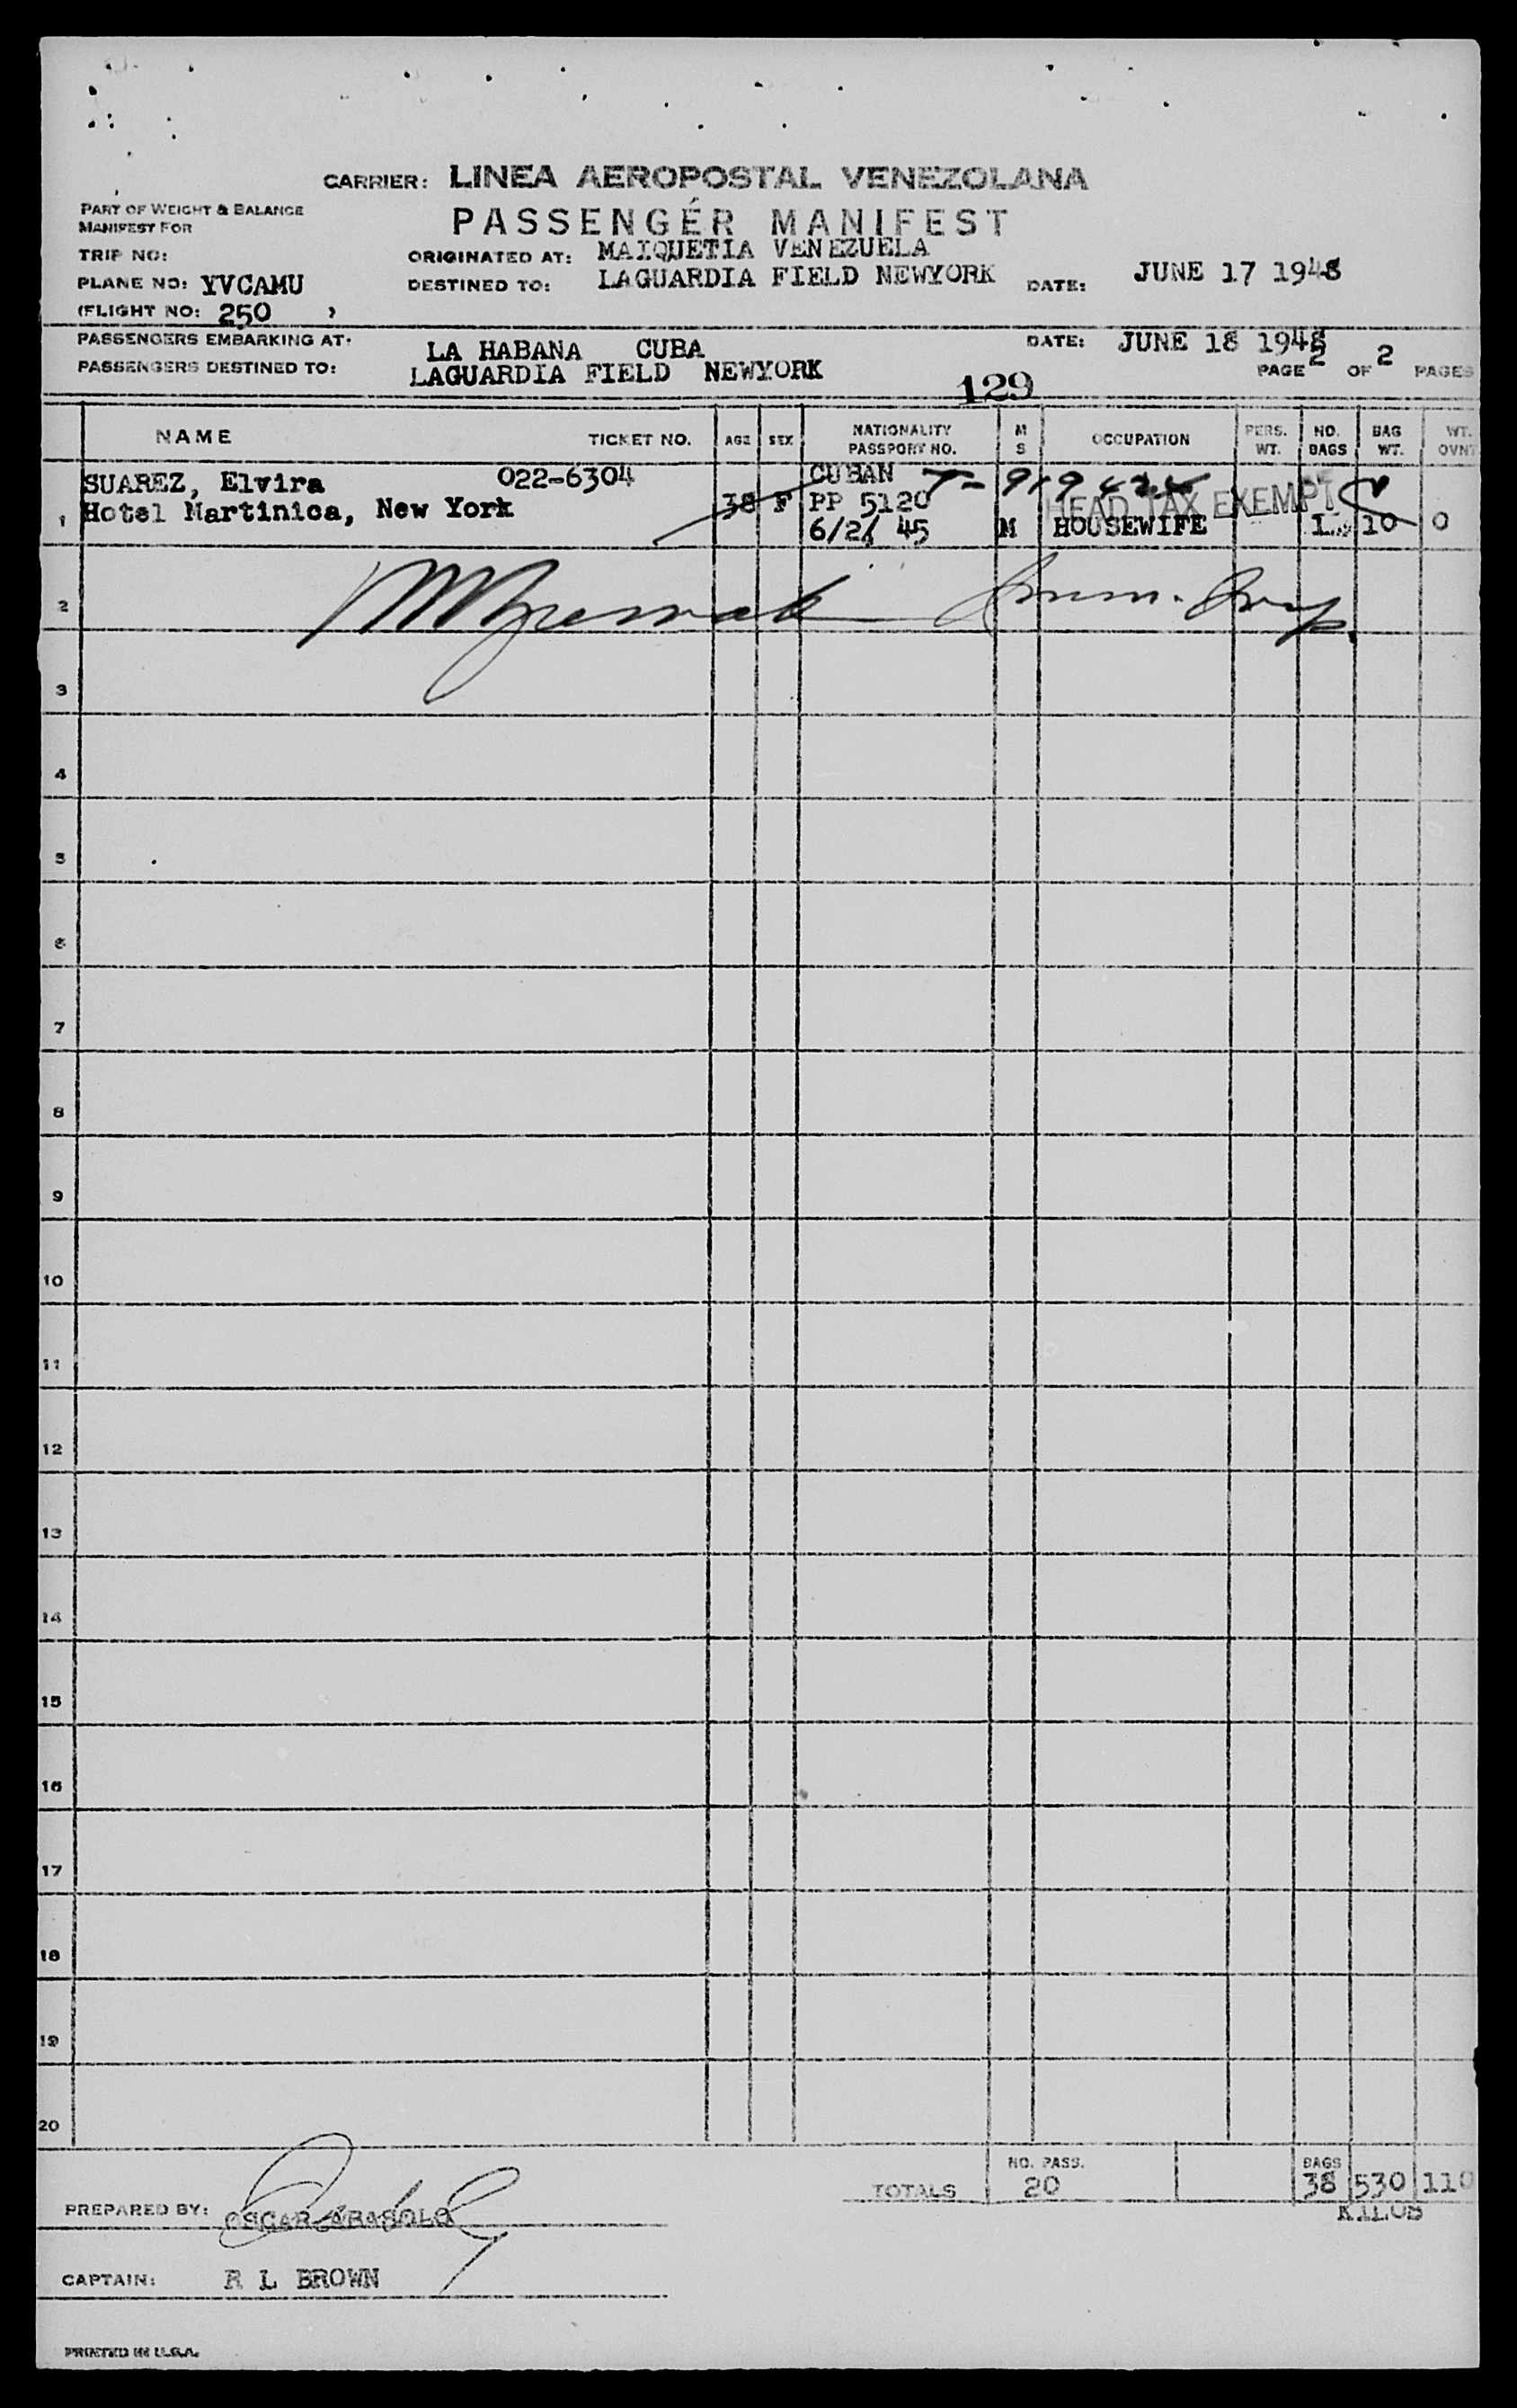 CARRIER: LINEA AEROPOSTAL VENEZOLANA
PART OF WEIGHT & BALANCE
MANIFEST FOR
PASSENGÉR MANIFEST
TRIP NO:
ORIGINATED AT: MAIQUETIA VENEZUELA
PLANE NO: YVCAMU
DESTINED TO: LAGUARDIA FIELD NEWYORK DATE: JUNE 17 1948
(FLIGHT NO: 250 )
PASSENGERS EMBARKING AT: LA HABANA CUBA DATE: JUNE 18 1948
PASSENGERS DESTINED TO: LAGUARDIA FIELD NEWYORK PAGE 2 OF 2 PAGES
129
NAME TICKET NO. AGE SEX NATIONALITY PASSPORT NO. M S OCCUPATION PERS. WT. NO. BAGS BAG WT. WT. OVNT
SUAREZ, Elvira 022-6304 CUBAN
Hotel Martinica, New York 38 F PP 5120 HEAD TAX EXEMPT
1 6/2/ 45 M HOUSEWIFE 1 10 0
2
3
4
5
6
7
8
9
10
11
12
13
14
15
16
17
18
19
20
TOTALS NO. PASS. 20 BAGS 38 530 110
KILOS
PREPARED BY: OSCAR
CAPTAIN: R L BROWN
PRINTED IN U.S.A.